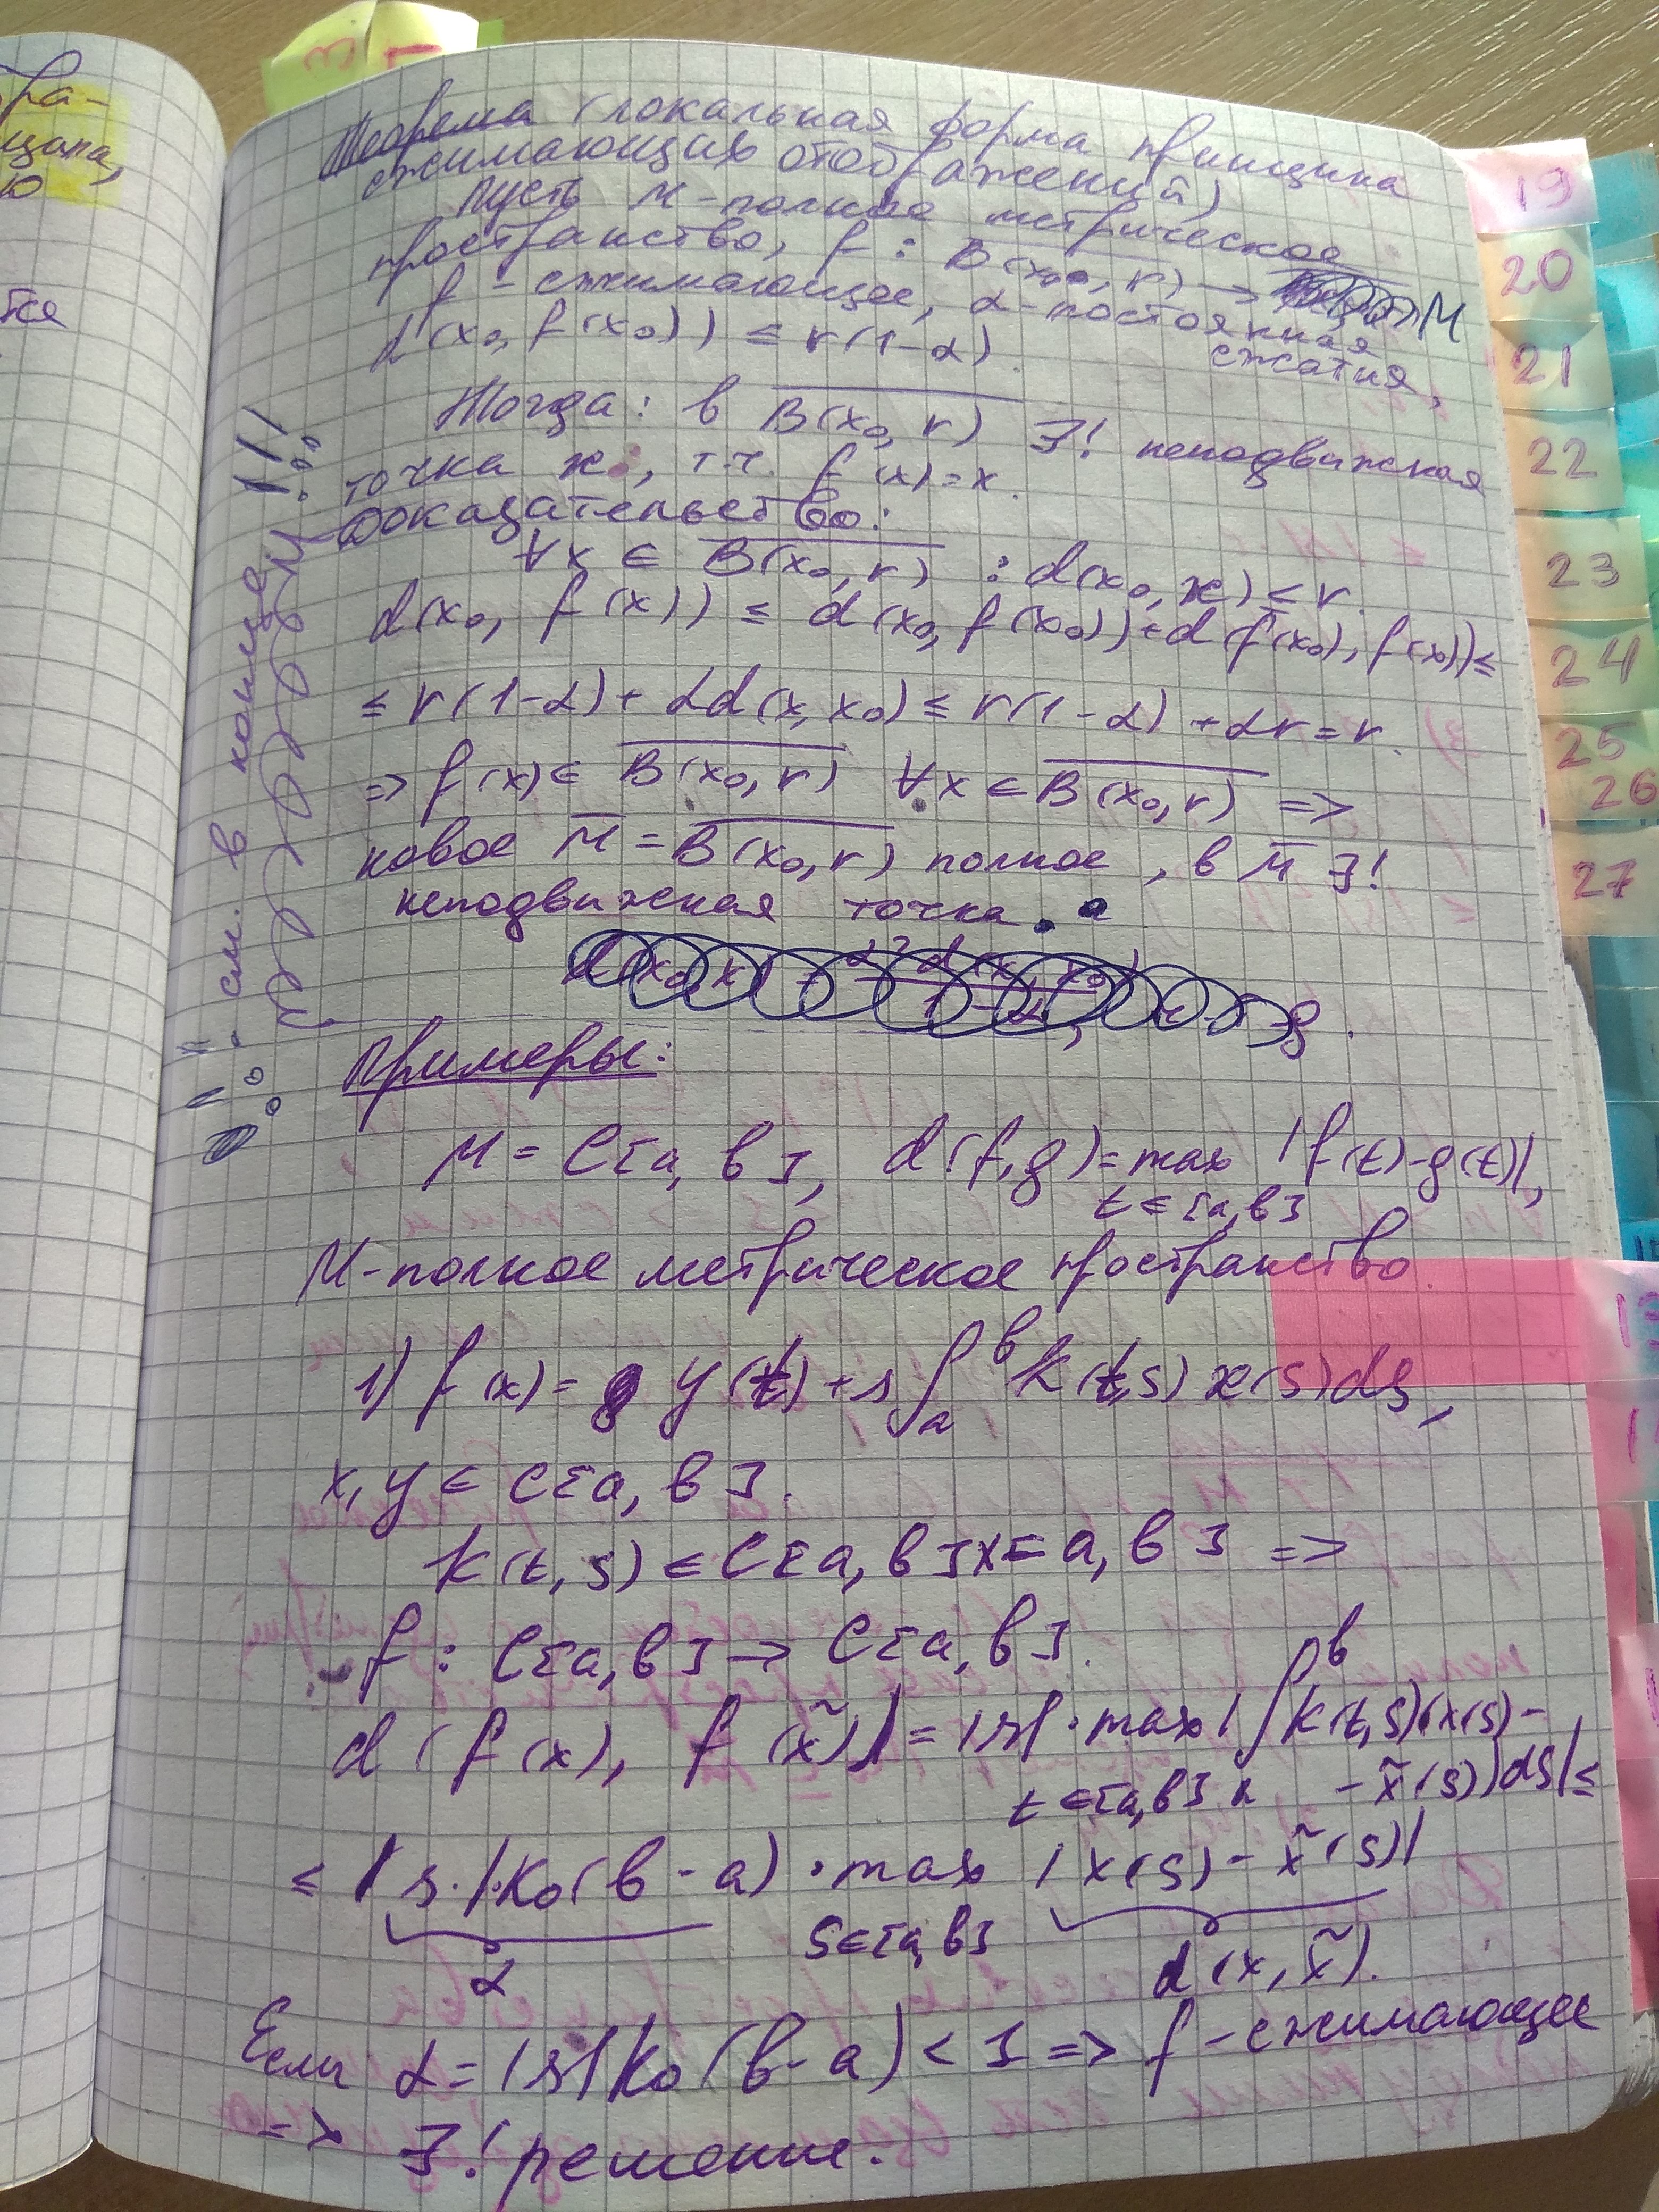 ра-
ципа,
ю
тся
Теорема (локальная форма принципа
сжимающих отображений)
Пусть M-полное метрическое
пространство, f : B(x₀, r) → M
f - сжимающее, α-постоянная
сжатия,
d(x₀, f(x₀)) ≤ r(1-α).
Тогда: в B(x₀, r) ∃! неподвижная
точка x, т.ч. f(x)=x.
Доказательство:
∀x ∈ B(x₀, r) : d(x₀, x) ≤ r.
d(x₀, f(x)) ≤ d(x₀, f(x₀))+d(f(x₀), f(x)) ≤
≤ r(1-α)+ αd(x, x₀) ≤ r(1-α) +αr=r.
⇒ f(x)∈ B(x₀, r) ∀x ∈ B(x₀, r) ⇒
новое M̄ = B(x₀, r) полное, в M̄ ∃!
неподвижная точка.
см. в конце !!!
Примеры:
M = C[a, b], d(f,g)= max |f(t)-g(t)|,
t∈[a,b]
M-полное метрическое пространство.
1) f(x)= y(t)+λ∫ₐᵇ k(t,s) x(s)ds,
x, y ∈ C[a, b].
k(t, s) ∈ C[a, b]x[a, b] ⇒
f : C[a,b] → C[a, b].
d(f(x), f(x̃))=|λ|·max|∫ᵇ k(t,s)(x(s)-
t∈[a,b] a -x̃(s))ds| ≤
≤ |λ·|·k₀(b-a)·max |x(s)-x̃(s)|
s∈[a,b]
α d(x, x̃).
Если α=|λ|k₀(b-a)<1 ⇒ f-сжимающее
⇒ ∃! решение.
19
20
21
22
23
24
25
26
27